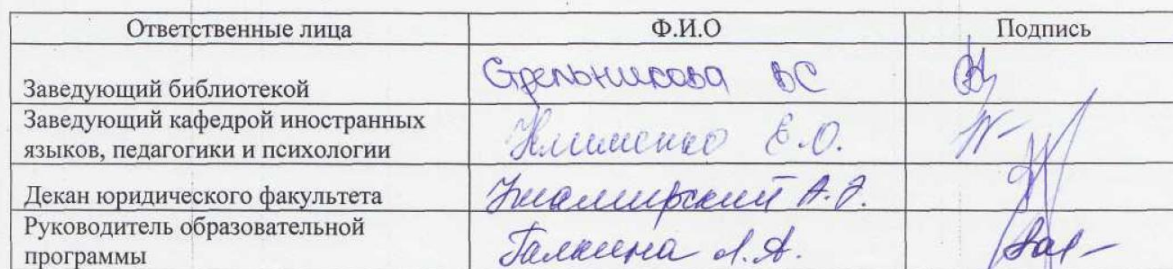 Ответственные лица Ф.И.О Подпись
Заведующий библиотекой Стрельникова ВС
Заведующий кафедрой иностранных
языков, педагогики и психологии Клименко Е.О.
Декан юридического факультета А.Э.
Руководитель образовательной
программы Галкина Л.А.